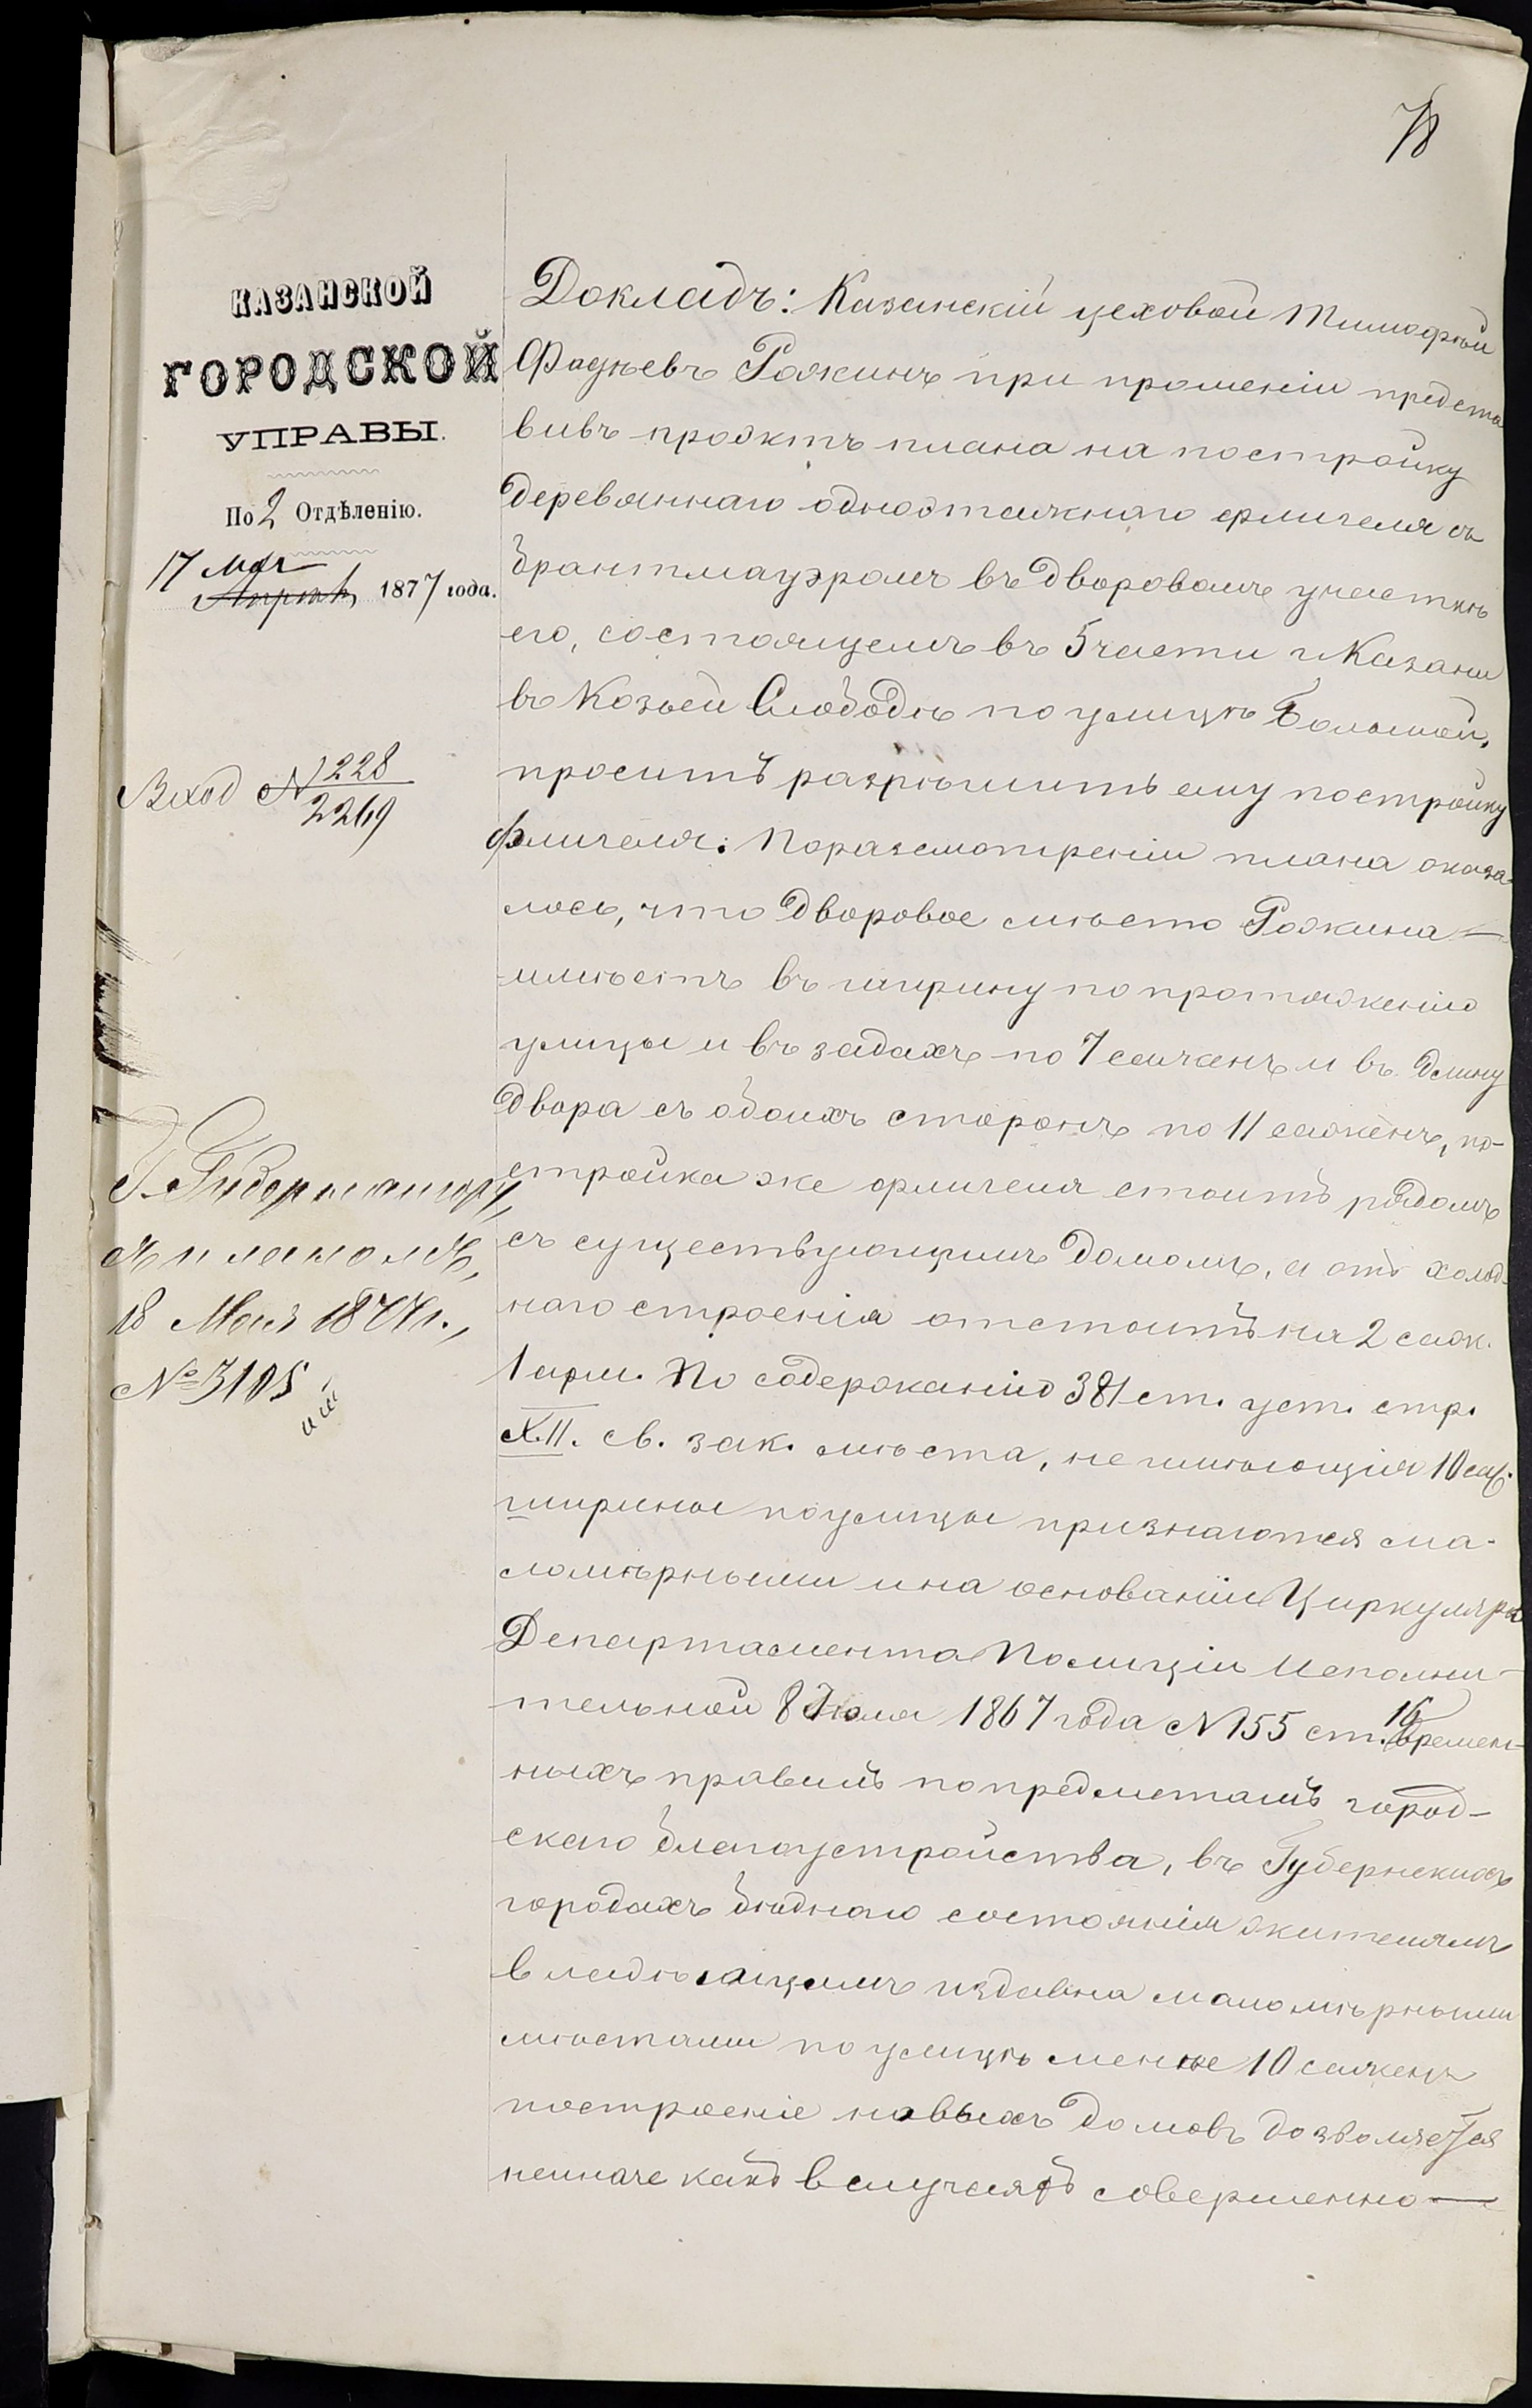 78
КАЗАНСКОЙ
ГОРОДСКОЙ
УПРАВЫ.
По 2 Отдѣленію.
17 мая
Апрѣля 1877 года.
Вход № 228
2269
Г. Губернатору,
съ планомъ,
18 Мая 1877 г.,
№ 3105
Докладъ: Казанскій цеховой Тимофей
Фадѣевъ Рожинъ при прошеніи предста
вивъ проэктъ плана на постройку
деревяннаго одноэтажнаго флигеля съ
брантмауэромъ въ дворовомъ участкѣ
его, состоящемъ въ 5 части г. Казани
въ Козьей Слободѣ по улицѣ Большой,
проситъ разрѣшить ему постройку
флигеля. По разсмотреніи плана оказа-
лось, что дворовое мѣсто Рожина —
имѣетъ въ ширину по протяженію
улицы и въ задахъ по 7 саженъ и въ длину
двора съ обоихъ сторонъ по 11 саженъ, по-
стройка же флигеля стоитъ рядомъ
съ существующимъ домомъ, а отъ холод-
наго строенія отстоитъ на 2 саж.
1 арш. По содержанію 381 ст. уст. стр.
X.II. св. зак. мѣста, не имѣющія 10 саж.
ширины по улицы признаются ма-
ломѣрными и на основаніи Циркуляра
Департамента Полиціи Исполни-
тельной 8 Іюля 1867 года № 155 ст. 16 времен-
ныхъ правилъ по предметамъ город-
скаго благоустройства, въ Губернскихъ
городахъ бѣднаго состоянія жителямъ
владѣющимъ издавна маломѣрными
мѣстами по улицѣ менѣе 10 саженъ
построеніе новыхъ домовъ дозволяется
неиначе какъ в случаяхъ совершенно —